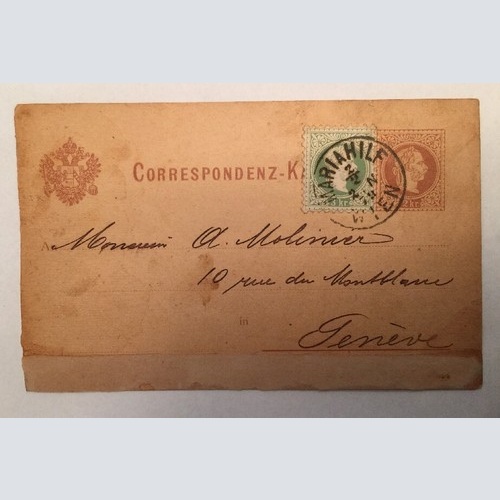 CORRESPONDENZ-K
MARIAHILF
WIEN
Monsieur A. Molinier
10 rue du Montblanc
in
Genève